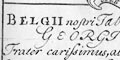 BELGII nostri Tab
GEORGI
Frater carissimus, a